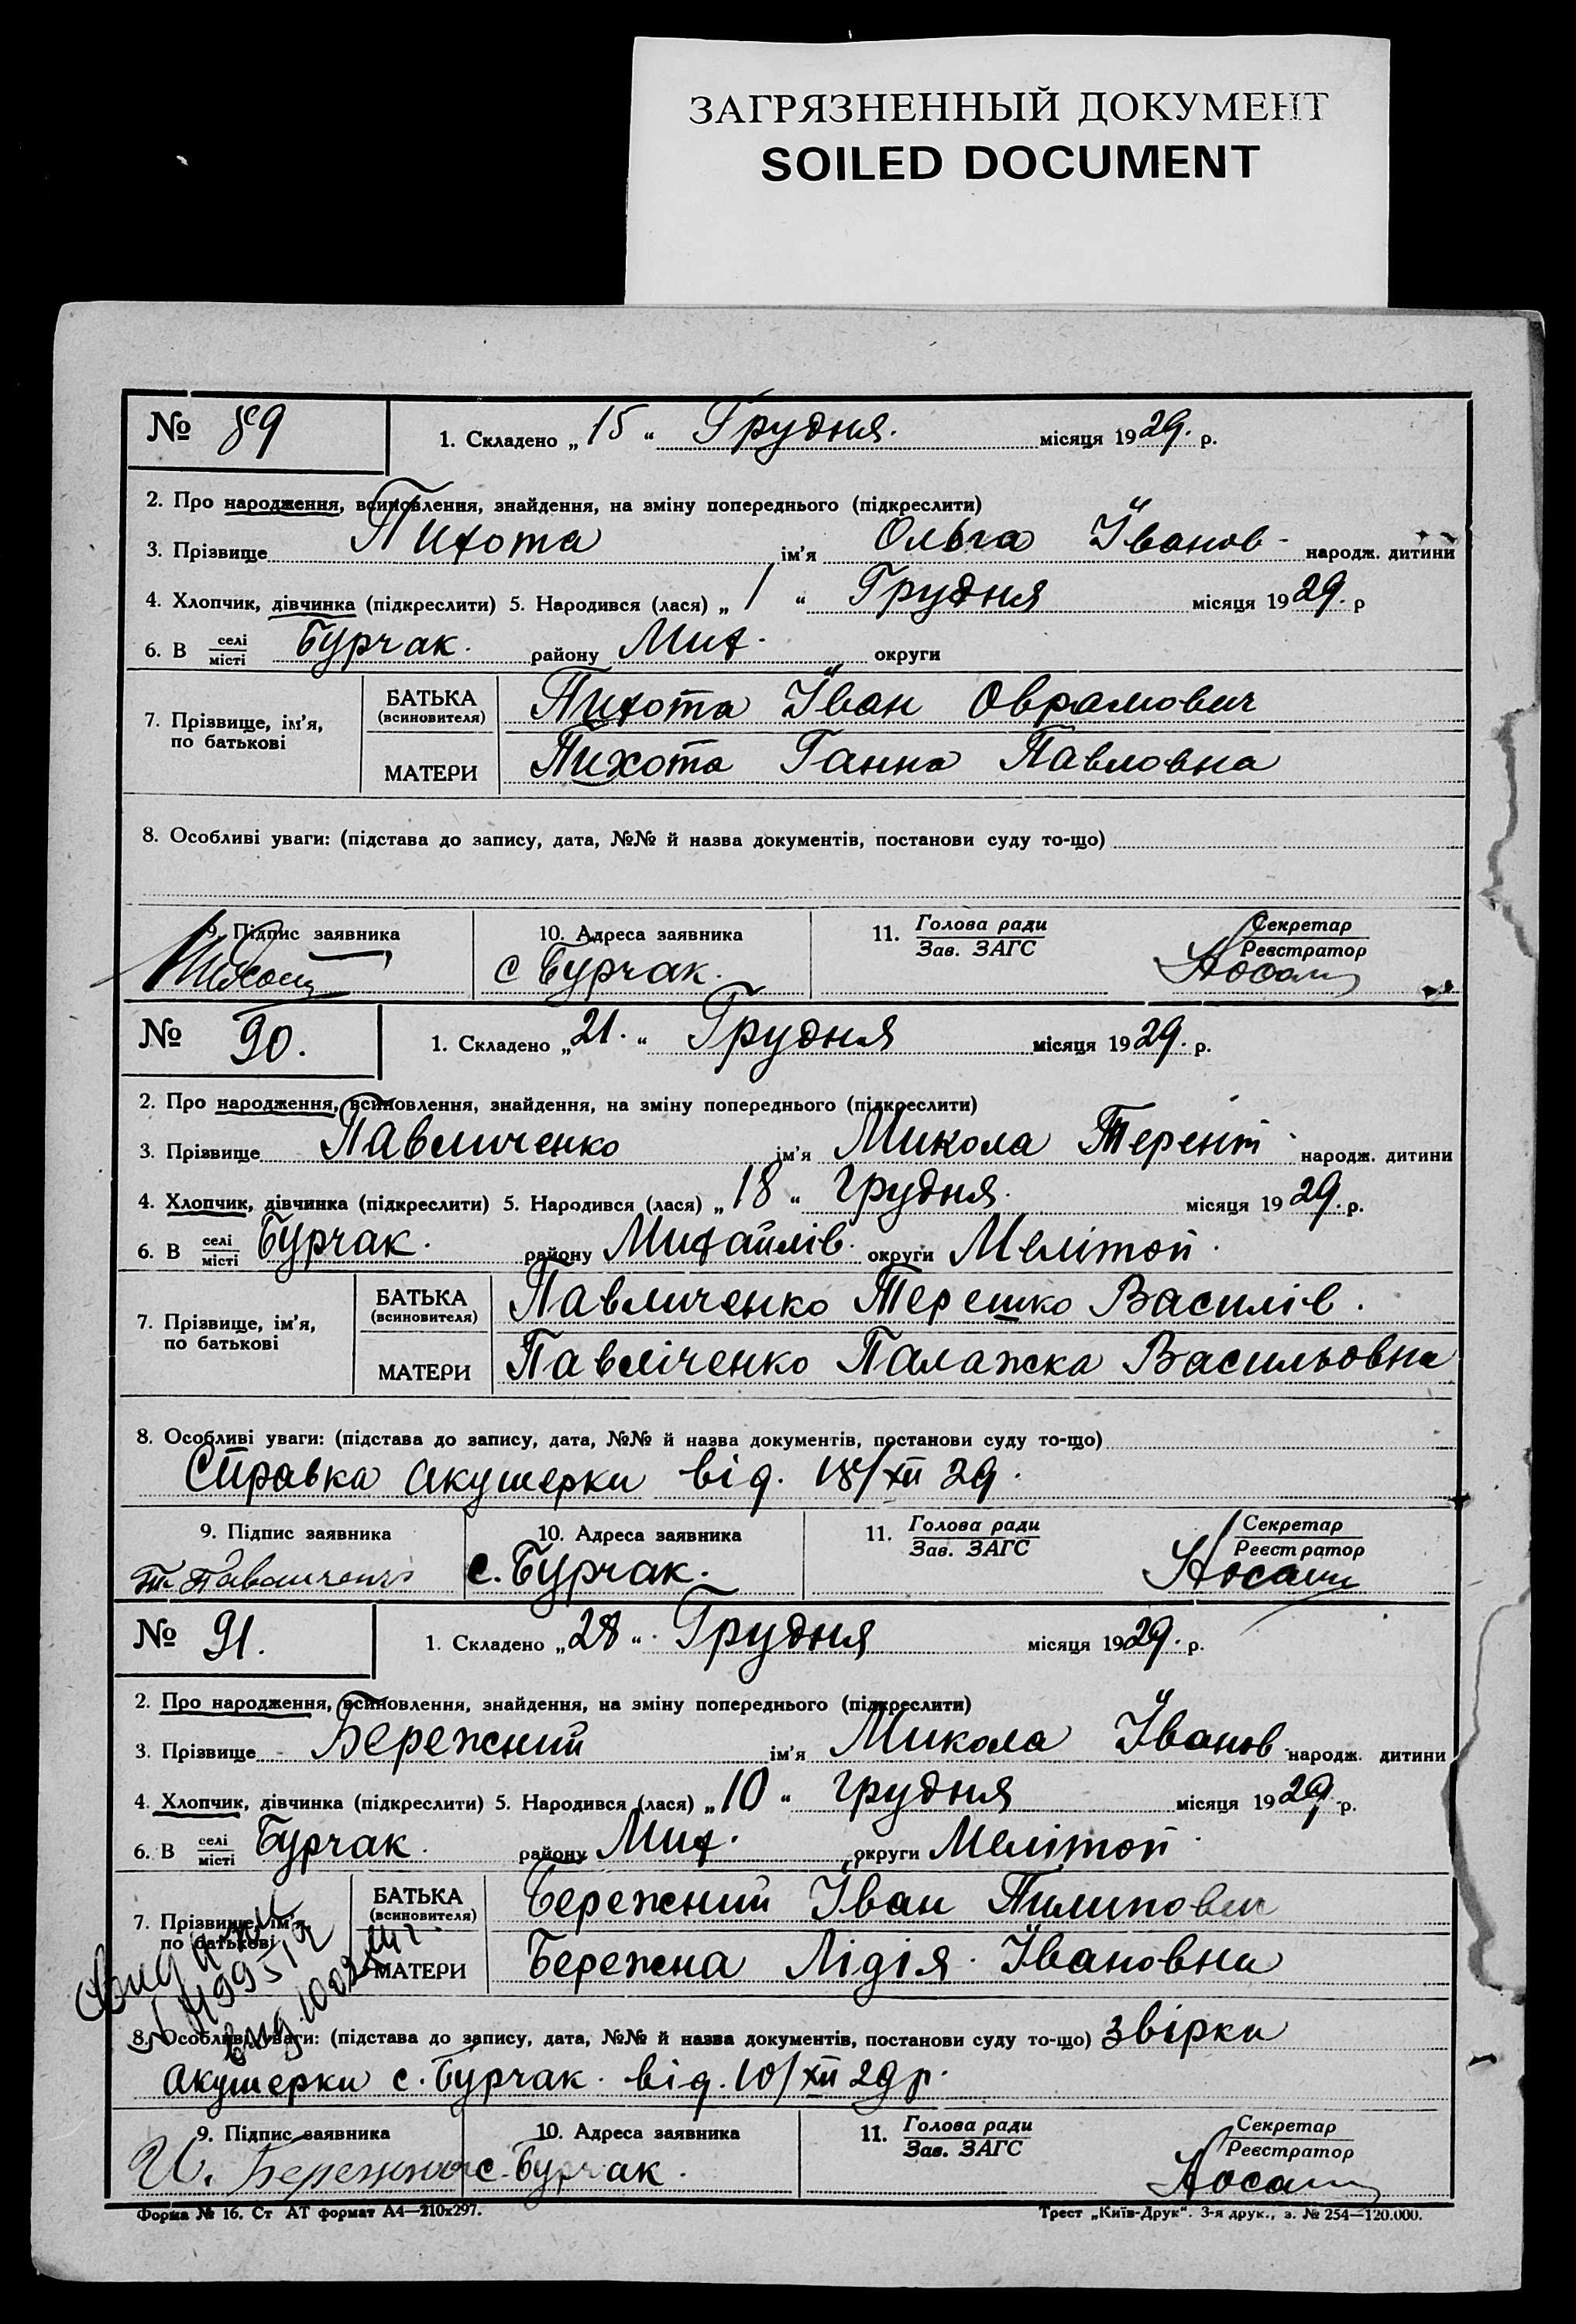 ЗАГРЯЗНЕННЫЙ ДОКУМЕНТ
SOILED DOCUMENT
№ 89
1. Складено „15“ Грудня. місяця 1929. р.
2. Про народження, всиновлення, знайдення, на зміну попереднього (підкреслити)
3. Прізвище Пихота ім'я Ольга Іванов- народж. дитини
4. Хлопчик, дівчинка (підкреслити) 5. Народився (лася) „1“ Грудня місяця 1929. р
6. В селі/місті Бурчак. району Мих. округи
7. Прізвище, ім'я, по батькові
БАТЬКА (всиновителя) Пихота Іван Оврамович
МАТЕРИ Пихота Ганна Павловна
8. Особливі уваги: (підстава до запису, дата, №№ й назва документів, постанови суду то-що)
9. Підпис заявника 10. Адреса заявника 11. Голова ради/Зав. ЗАГС Секретар/Реєстратор
с Бурчак.
№ 90.
1. Складено „21.“ Грудня місяця 1929. р.
2. Про народження, всиновлення, знайдення, на зміну попереднього (підкреслити)
3. Прізвище Павличенко ім'я Микола Терент. народж. дитини
4. Хлопчик, дівчинка (підкреслити) 5. Народився (лася) „18“ грудня. місяця 1929. р.
6. В селі/місті Бурчак. району Михайлів. округи Мелітоп.
7. Прізвище, ім'я, по батькові
БАТЬКА (всиновителя) Павличенко Терешко Василів.
МАТЕРИ Павліченко Палажка Васильовна
8. Особливі уваги: (підстава до запису, дата, №№ й назва документів, постанови суду то-що)
Справка акушерки від. 18/XII 29.
9. Підпис заявника 10. Адреса заявника 11. Голова ради/Зав. ЗАГС Секретар/Реєстратор
с. Бурчак. Носаш
№ 91.
1. Складено „28“ Грудня місяця 1929. р.
2. Про народження, всиновлення, знайдення, на зміну попереднього (підкреслити)
3. Прізвище Бережний ім'я Микола Іванов народж. дитини
4. Хлопчик, дівчинка (підкреслити) 5. Народився (лася) „10“ грудня місяця 1929, р.
6. В селі/місті Бурчак. району Мих. округи Мелітоп.
7. Прізвище, ім'я, по батькові
БАТЬКА (всиновителя) Бережний Іван Пилипович
МАТЕРИ Бережна Лідія Івановна
8. Особливі уваги: (підстава до запису, дата, №№ й назва документів, постанови суду то-що) звірка
акушерки с. Бурчак. від. 10/XII 29 р.
9. Підпис заявника 10. Адреса заявника 11. Голова ради/Зав. ЗАГС Секретар/Реєстратор
И. Бережный с. Бурчак. Носаш
Форма № 16. Ст АТ формат А4—210х297.
Трест „Київ-Друк“. 3-я друк., з. № 254—120.000.